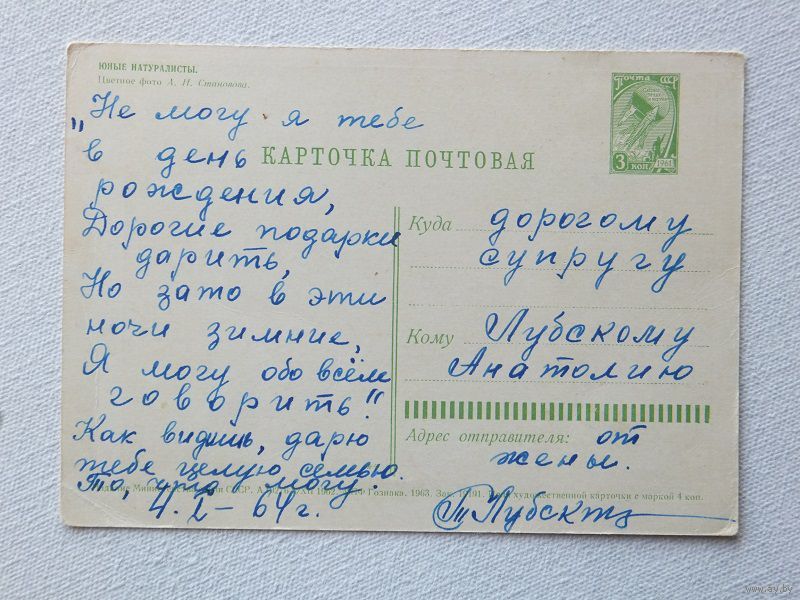 ЮНЫЕ НАТУРАЛИСТЫ.
Цветное фото А. Н. Становова.
Почта СССР
1961
3 коп.
КАРТОЧКА ПОЧТОВАЯ
„Не могу я тебе
в день
рождения,
Дорогие подарки
дарить,
Но зато в эти
ночи зимние,
Я могу обо всём
говорить".
Как видишь, дарю
тебе целую семью.
То, что могу.
4.I – 64 г.
Куда дорогому
супругу
Кому Лубскому
Анатолию
Адрес отправителя: от
жены.
Издание СССР. 1962 Гознака. 1963. Зак. художественной карточки с маркой 4 коп.
www.ay.by